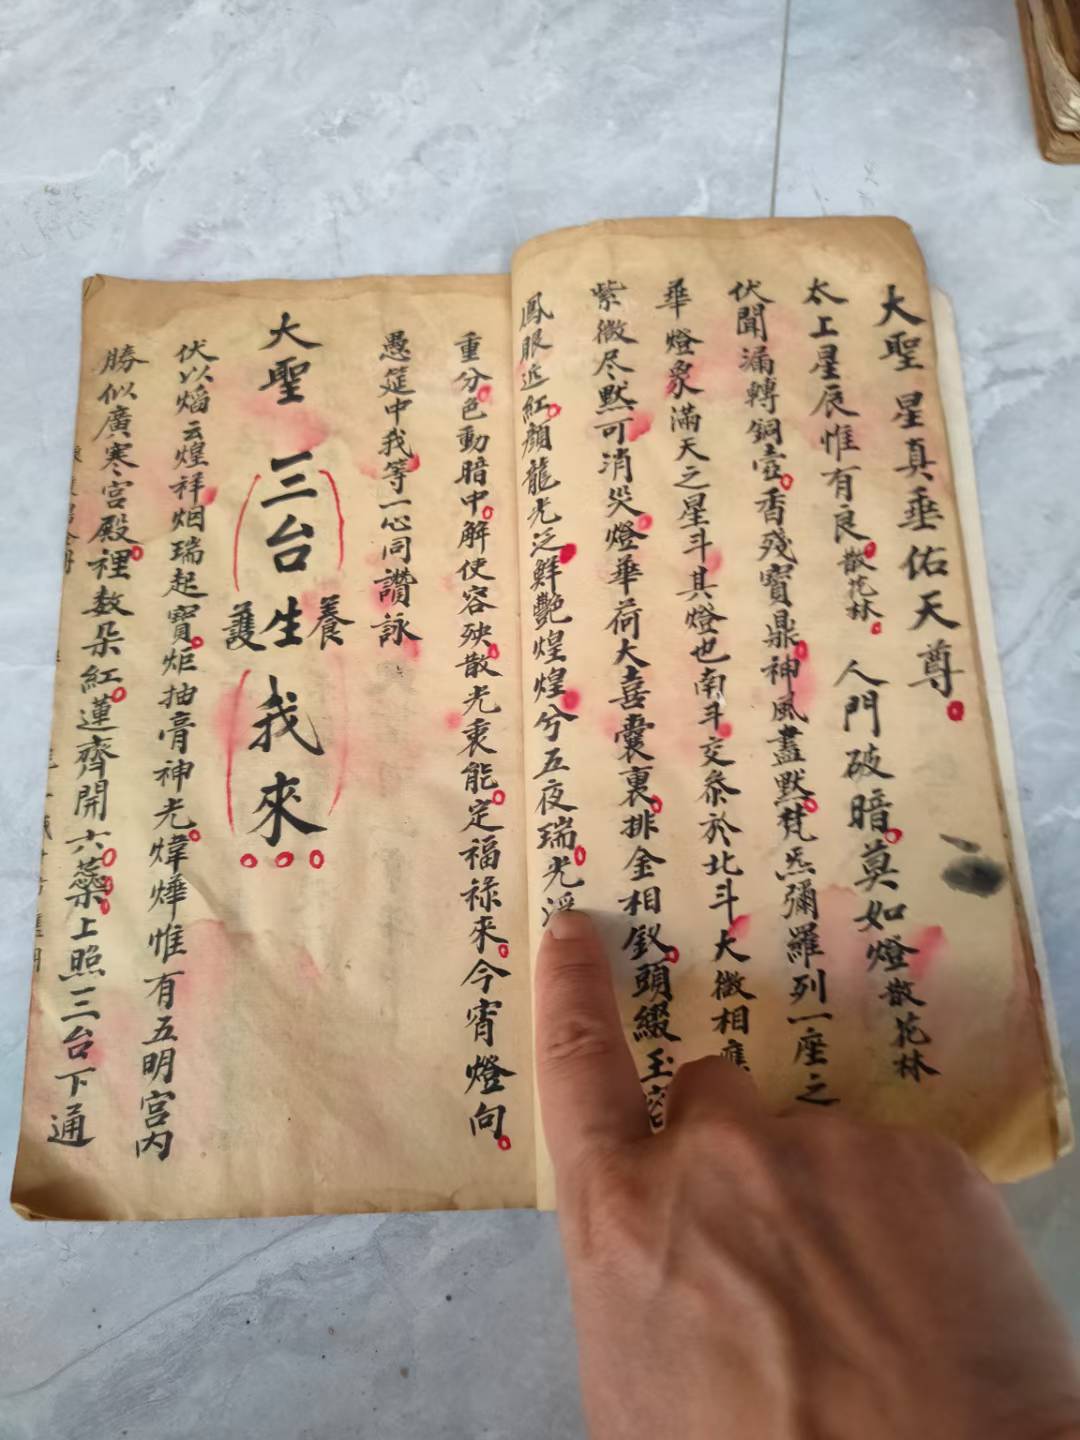 大聖星真垂佑天尊
太上星辰惟有良散花林 人門破暗莫如燈散花林
伏聞漏轉銅壺香殘寶鼎神風盡默梵炁彌羅列一座之
華燈象滿天之星斗其燈也南斗交參於北斗大微相應
紫微尽黙可消災燈華荷大喜囊裏排金相釵頭綴玉
鳳眼遮紅顔龍光泛鮮艷煌煌兮五夜瑞光浮
重分色動暗中解使容殃散光衷能定福祿来今宵燈向
愚筵中我等一心同讚詠
大聖三台養生護我來
伏以熖云煌祥烟瑞起寶炬抽膏神光煒燁惟有五明宫内
勝似廣寒宫殿裡数朵紅蓮齊開六蘂上照三台下通